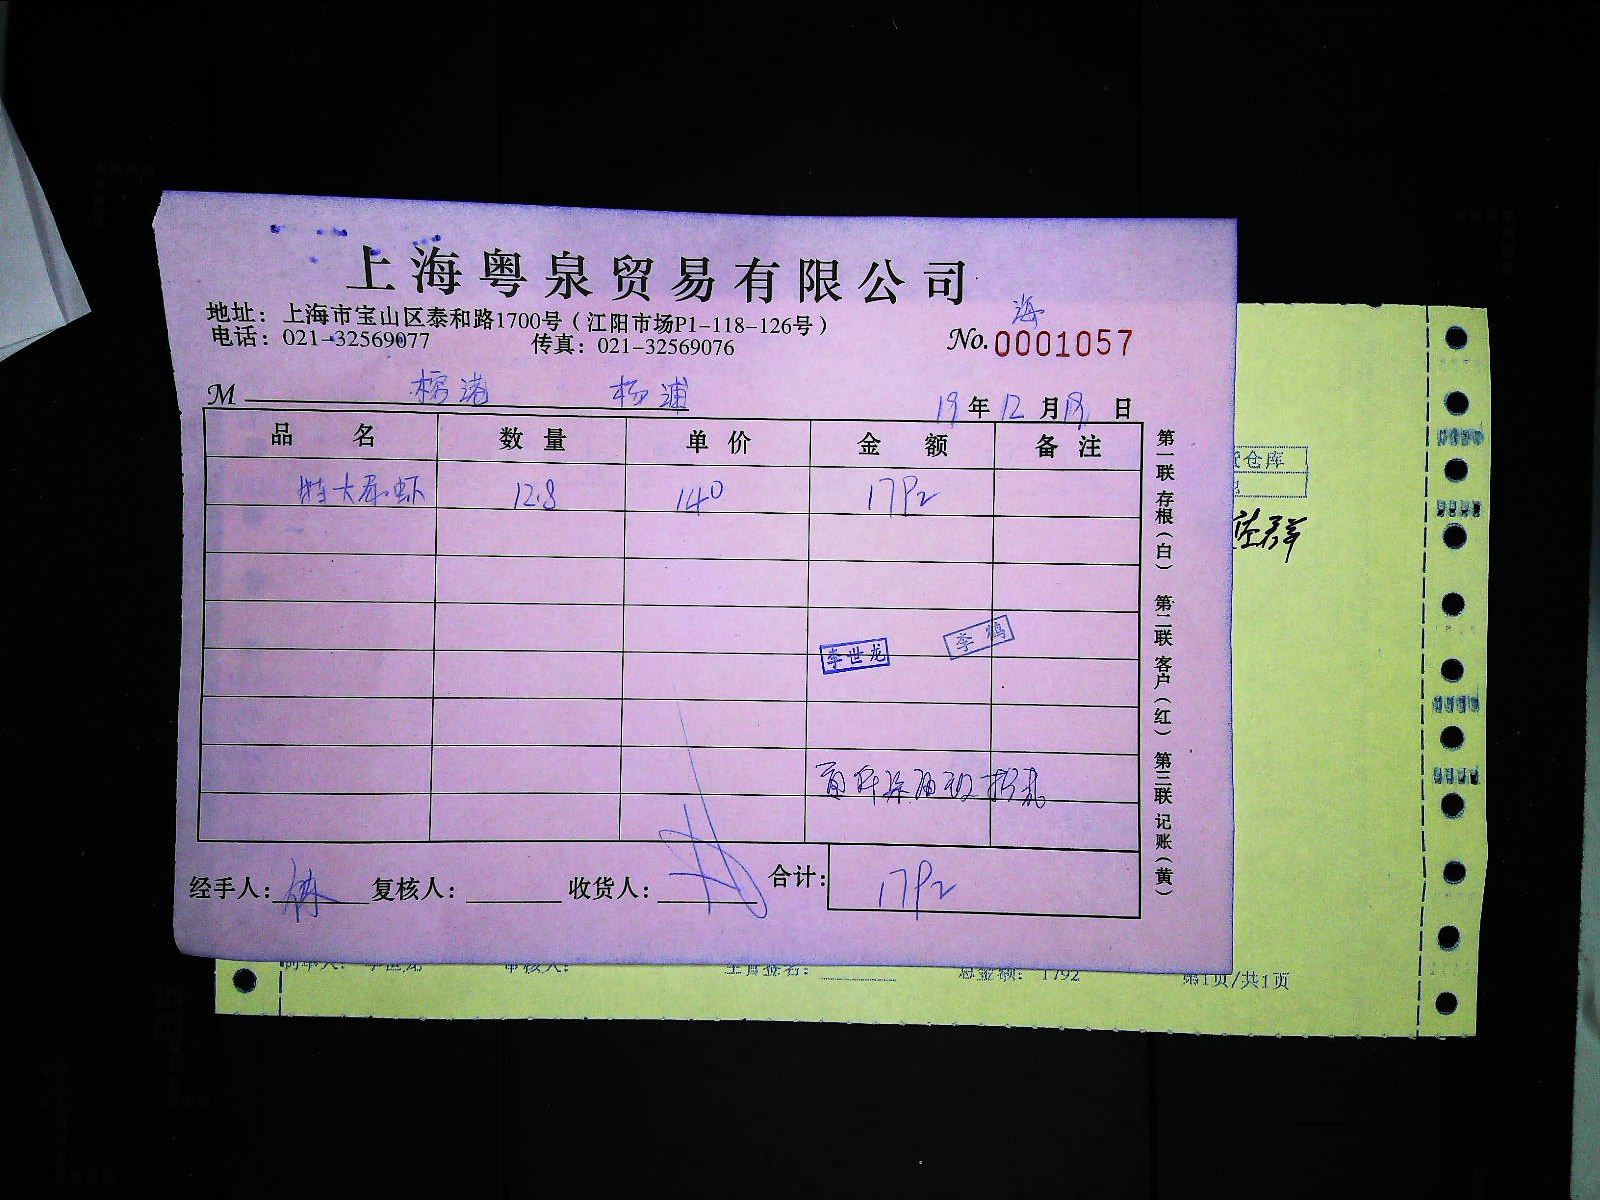 上海粤泉贸易有限公司
地址：上海市宝山区泰和路1700号（江阳市场P1-118-126号）
海
电话：021-32569077 传真：021-32569076 No.0001057
M 杨浦
19年12月19日
品名 数量 单价 金额 备注
特大 虾 12.8 140 1792
李世龙 李鹤
经手人： 复核人： 收货人： 合计：1792
第一联 存根（白） 第二联 客户（红） 第三联 记账（黄）
仓库
制单人：李世龙 审核人： 主管签名： 总金额：1792 第1页/共1页